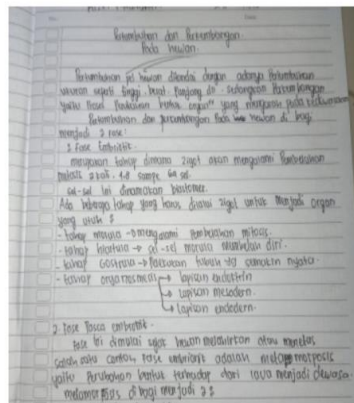 Pertumbuhan dan Perkembangan
Pada hewan.
Pertumbuhan hewan ditandai dengan adanya Pertumbuhan
ukuran seperti tinggi, berat, Panjang, dll. sedangkan Perkembangan
yaitu Proses Perubahan bentuk organ yang mengarah pada kedewasaan
Pertumbuhan dan perkembangan Pada hewan di bagi
menjadi 2 fase:
1. Fase Embriotik.
merupakan tahap dimana zigot akan mengalami Pembelahan
sampe 64 sel.
sel-sel ini dinamakan blastomer.
Ada beberapa tahap yang harus dilalui zigot untuk menjadi organ
yang utuh :
- tahap morula → mengalami Pembelahan mitosis.
- tahap blastula → sel-sel morula membelah diri.
- tahap Gastrula → tubuh yg semakin nyata.
- tahap organogenesis → lapisan
→ lapisan mesoderm.
→ lapisan endoderm.
2. Fase Pasca embriotik.
Fase ini dimulai sejak hewan melahirkan atau menetas
salah satu contoh, fase adalah metamorfosis
yaitu Perubahan bentuk dari menjadi dewasa.
metamorfosis di bagi menjadi 2 :